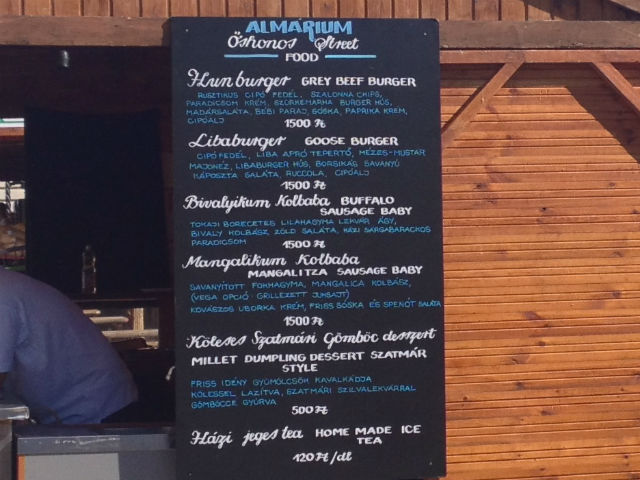 ALMÁRIUM
Őshonos Street
FOOD
Hun burger GREY BEEF BURGER
RUSZTIKUS CIPÓ FEDÉL, SZALONNA CHIPS,
PARADICSOM KRÉM, SZÜRKEMARHA BURGER HÚS,
MADÁRSALÁTA, BÉBI PARAJ, SÓSKA, PAPRIKA KRÉM,
CIPÓALJ
1500 Ft
Libaburger GOOSE BURGER
CIPÓ FEDÉL, LIBA APRÓ TEPERTŐ, MÉZES-MUSTÁR
MAJONÉZ, LIBABURGER HÚS, BORSIKÁS SAVANYÚ
KÁPOSZTA SALÁTA, RUCCOLA, CIPÓALJ
1500 Ft
Bivalyikum Kolbaba BUFFALO
SAUSAGE BABY
TOKAJI BORECETES LILAHAGYMA LEKVÁR ÁGY,
BIVALY KOLBÁSZ, ZÖLD SALÁTA, HÁZI SÁRGABARACKOS
PARADICSOM
1500 Ft
Mangalikum Kolbaba
MANGALITZA SAUSAGE BABY
SAVANYÍTOTT FOKHAGYMA, MANGALICA KOLBÁSZ,
(VEGA OPCIÓ: GRILLEZETT JUHSAJT)
KOVÁSZOS UBORKA KRÉM, FRISS SÓSKA ÉS SPENÓT SALÁTA
1500 Ft
Köleses Szatmári Gömböc desszert
MILLET DUMPLING DESSERT SZATMÁR
STYLE
FRISS IDÉNY GYÜMÖLCSÖK KAVALKÁDJA
KÖLESSEL LAZÍTVA, SZATMÁRI SZILVALEKVÁRRAL
GÖMBÖCCÉ GYÚRVA
500 Ft
Házi jeges tea HOME MADE ICE
TEA
120 Ft/dl